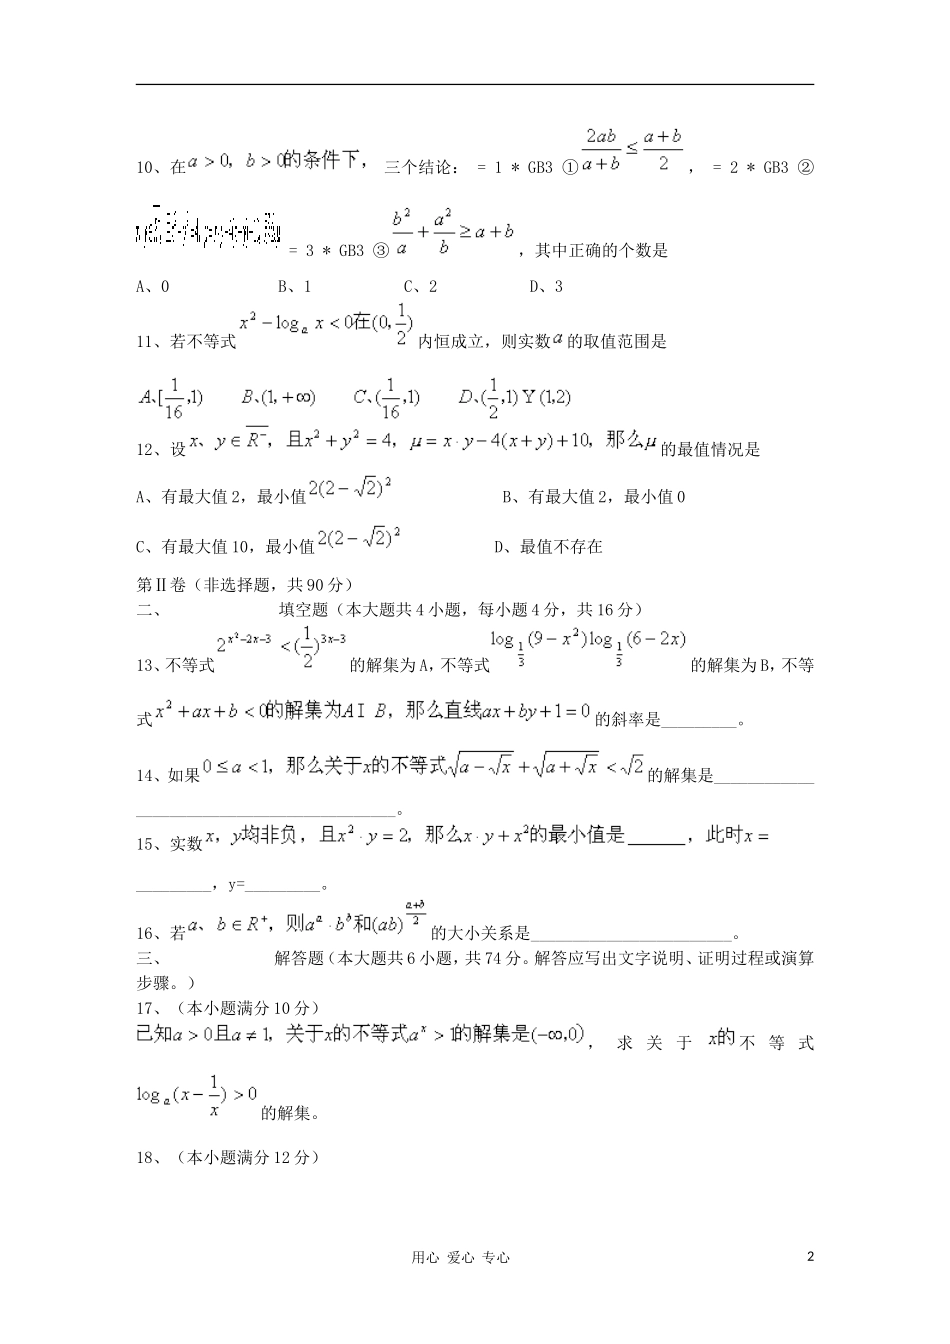 10、在a＞0，b＞0的条件下， 三个结论： = 1 * GB3 ①2ab/(a+b) ≤ (a+b)/2 ， = 2 * GB3 ②
= 3 * GB3 ③ b²/a + a²/b ≥ a+b ，其中正确的个数是
A、0 B、1 C、2 D、3
11、若不等式 x² − logₐ x ＜ 0在(0, 1/2) 内恒成立，则实数 a 的取值范围是
A、[1/16,1) B、(1,+∞) C、(1/16,1) D、(1/2,1) Y (1,2)
12、设 x、y ∈ R⁻，且x² + y² = 4，μ = x · y − 4(x + y) + 10，那么μ 的最值情况是
A、有最大值 2，最小值 2(2 − √2)² B、有最大值 2，最小值 0
C、有最大值 10，最小值 2(2 − √2)² D、最值不存在
第Ⅱ卷（非选择题，共 90 分）
二、 填空题（本大题共 4 小题，每小题 4 分，共 16 分）
13、不等式 2^(x²−2x−3) < (1/2)^(3x−3) 的解集为 A，不等式 log_(1/3) (9 − x²) log_(1/3) (6 − 2x) 的解集为 B，不等
式 x² + ax + b < 0的解集为A I B，那么直线ax + by + 1 = 0 的斜率是_________。
14、如果 0 ≤ a < 1，那么关于x的不等式√(a − √x) + √(a + √x) < √2 的解集是____________
_______________________________。
15、实数 x，y均非负，且x² · y = 2，那么x · y + x²的最小值是______，此时x =
_________，y=_________。
16、若 a、b ∈ R⁺，则aᵃ · bᵇ和(ab)^((a+b)/2) 的大小关系是________________________。
三、 解答题（本大题共 6 小题，共 74 分。解答应写出文字说明、证明过程或演算
步骤。）
17、（本小题满分 10 分）
已知a > 0且a ≠ 1，关于x的不等式aˣ > 1的解集是(−∞,0) ， 求 关 于 x的 不 等 式
logₐ (x − 1/x) > 0 的解集。
18、（本小题满分 12 分）
用心 爱心 专心 2